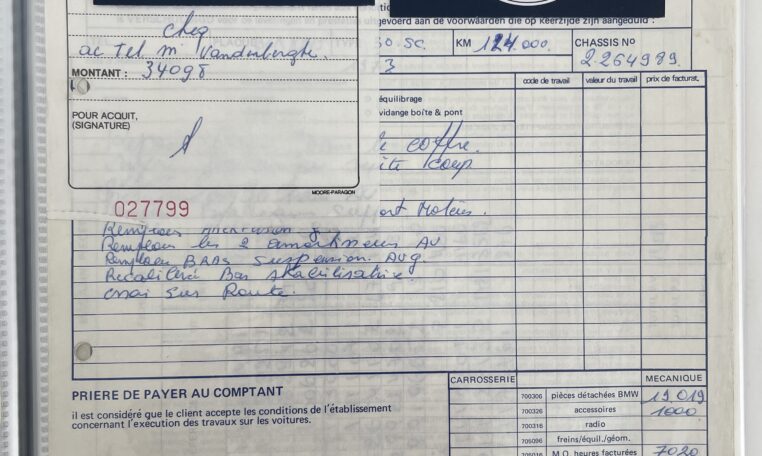 cheq
ac Tel m. Vanderberghe.
MONTANT : 34098
POUR ACQUIT,
(SIGNATURE)
MOORE-PARAGON
027799
gevoerd aan de voorwaarden die op keerzijde zijn aangeduid :
KM 124.000.
CHASSIS No
2.264989.
3
code de travail valeur du travail prix de facturat.
équilibrage
vidange boîte & pont
coffre.
coup
Moteur.
Remplacer les 2 amortisseurs AV
Remplacer BRAS suspension AVg.
Bar stabilisatrice.
essai sur Route.
CARROSSERIE MECANIQUE
PRIERE DE PAYER AU COMPTANT
il est considéré que le client accepte les conditions de l'établissement
concernant l'execution des travaux sur les voitures.
700306 pièces détachées BMW 19.019
700326 accessoires 1000
700316 radio
705096 freins/équil./géom.
705016 M.O. heures facturées 7020